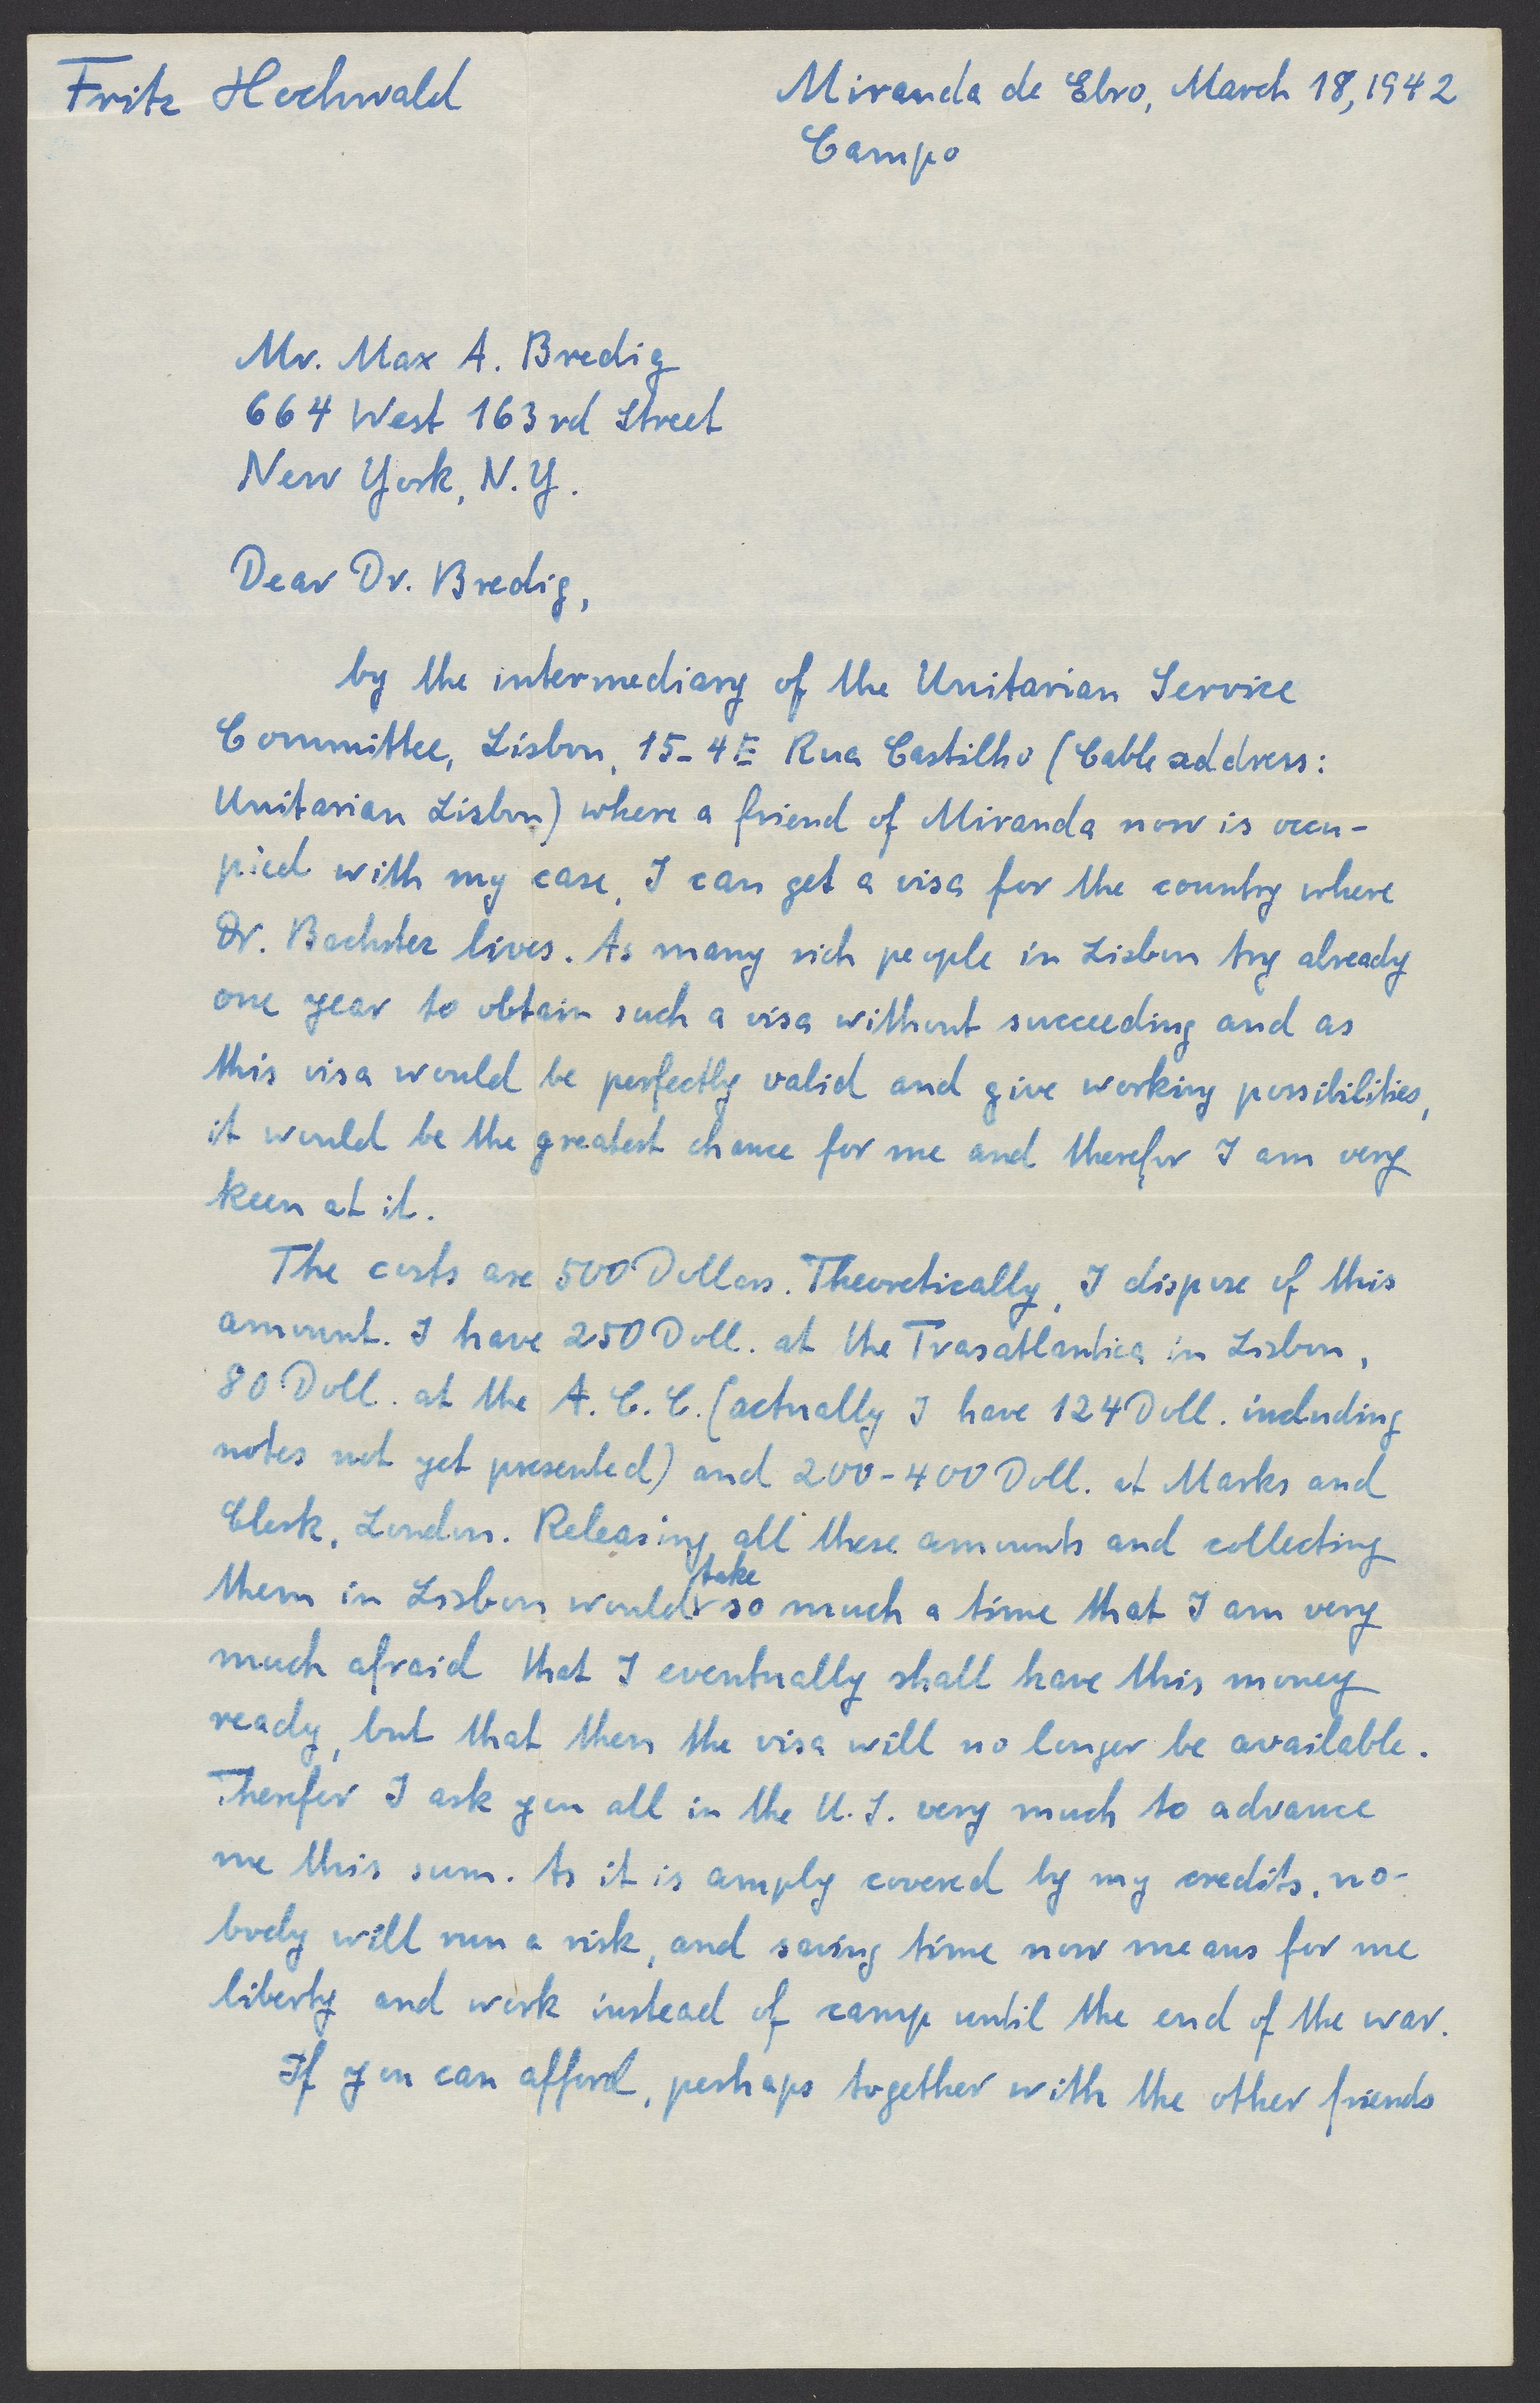 Fritz Hochwald
Miranda de Ebro, March 18, 1942
Campo
Mr. Max A. Bredig
664 West 163rd Street
New York, N.Y.
Dear Dr. Bredig,
by the intermediary of the Unitarian Service
Committee, Lisbon, 15-4E Rua Castilho (Cable address:
Unitarian Lisbon) where a friend of Miranda now is occu-
pied with my case, I can get a visa for the country where
Dr. lives. As many rich people in Lisbon try already
one year to obtain such a visa without succeeding and as
this visa would be perfectly valid and give working possibilities,
it would be the greatest chance for me and therefor I am very
keen at it.
The costs are 500 Dollars. Theoretically, I dispose of this
amount. I have 250 Doll. at the Trasatlantica in Lisbon,
80 Doll. at the A.C.C. (actually I have 124 Doll. including
notes not yet presented) and 200-400 Doll. at Marks and
Clerk, London. Releasing all these amounts and collecting
them in Lisbon would take so much a time that I am very
much afraid that I eventually shall have this money
ready, but that then the visa will no longer be available.
Therefor I ask you all in the U.S. very much to advance
me this sum. As it is amply covered by my credits, no-
body will run a risk, and saving time now means for me
liberty and work instead of camp until the end of the war.
If you can afford, perhaps together with the other friends